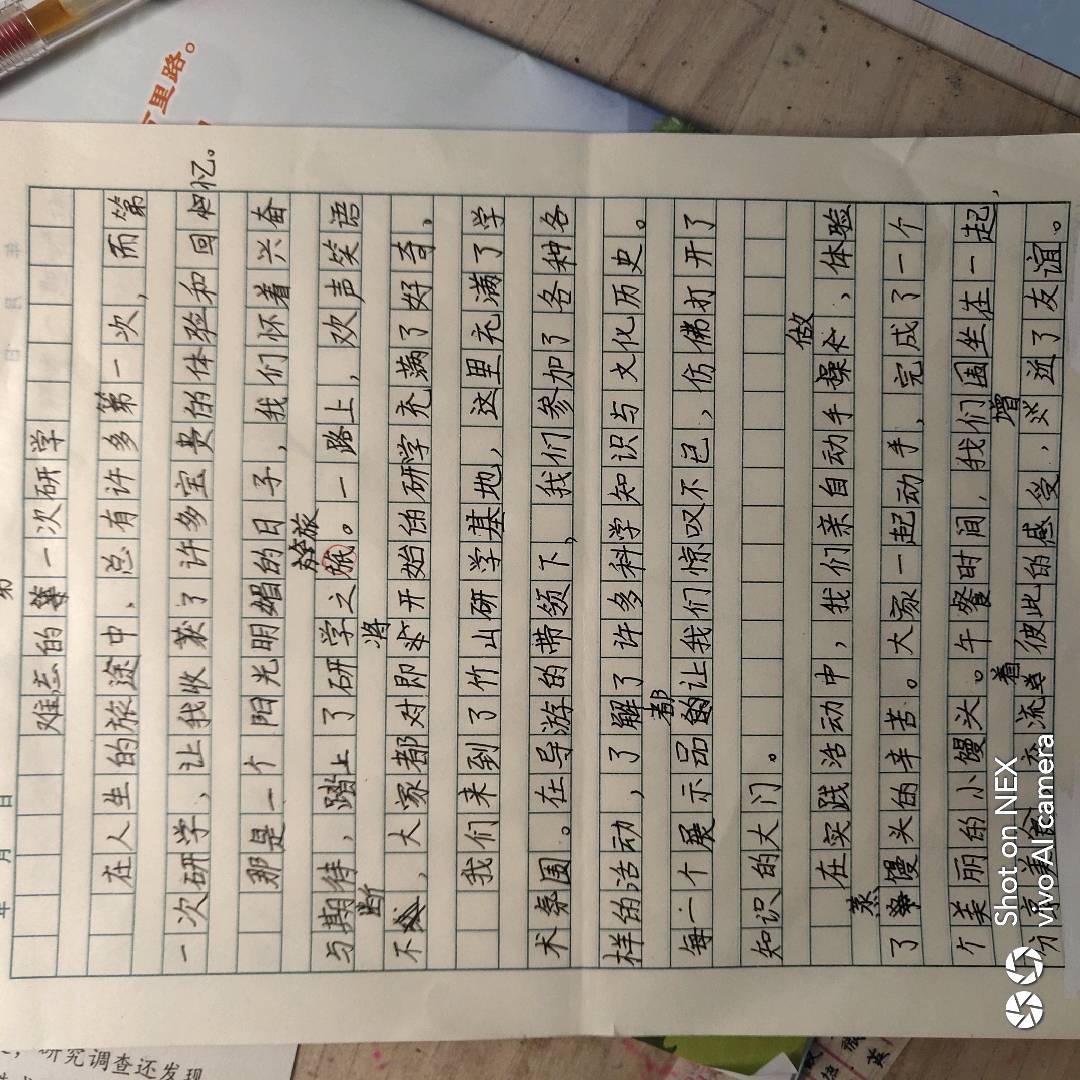 里路。
第
年 月 日
难忘的第一次研学
在人生的旅途中，总有许多第一次，而第
一次研学，让我收获了许多宝贵的体验和回忆。
那是一个阳光明媚的日子，我们怀着兴奋
旅
与期待，踏上了研学之旅。一路上，欢声笑语
断 将
不，大家都对即开始的研学充满了好奇，
我们来到了竹山研学基地，这里充满了学
术氛围。在导游的带领下，我们参加了各种各
样的活动，了解了许多科学知识与文化历史。
都
每一个展示品让我们惊叹不已，仿佛打开了
知识的大门。
做
在实践活动中，我们亲自动手操作、体验
蒸
了馒头的辛苦。大家一起动手，完成了一个
个美丽的小馒头。午餐时间，我们围坐在一起，
着 增
分享美食、交流彼此的感受，进了友谊。
Shot on NEX
vivo AI camera
研究调查还发现